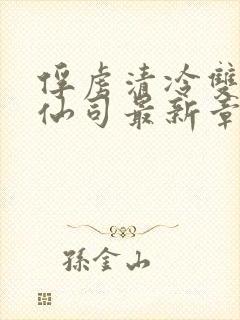 俘虏清冷雙
仙司最新章
孫金山